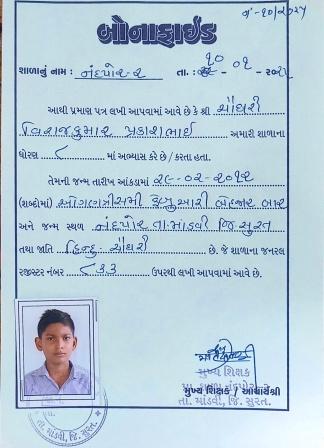 નં-૧૦/૨૦૨૫
બોનાફાઈડ
શાળાનું નામ : નંદપોર-૨ તા. : ૧૦ - ૦૧ - ૨૦૨૫
આથી પ્રમાણ પત્ર લખી આપવામાં આવે છે કે શ્રી ચૌધરી
વિરાજકુમાર પ્રકાશભાઈ અમારી શાળાના
ધોરણ ૮ માં અભ્યાસ કરે છે / કરતા હતા.
તેમની જન્મ તારીખ આંકડામાં ૨૯-૦૨-૨૦૧૨
(શબ્દોમાં) ઓગણત્રીસમી ફેબ્રુઆરી બેહજાર બાર
અને જન્મ સ્થળ નંદપોર તા.માંડવી જિ.સુરત
તથા જાતિ હિન્દુ - ચૌધરી છે. જે શાળાના જનરલ
રજીસ્ટર નંબર ૮૩૩ ઉપરથી લખી આપવામાં આવે છે.
મુખ્ય શિક્ષક
મુખ્ય શિક્ષક / આચાર્યશ્રી
નંદપોર
તા. માંડવી, જિ. સુરત.
તા. માંડવી, જિ. સુરત.